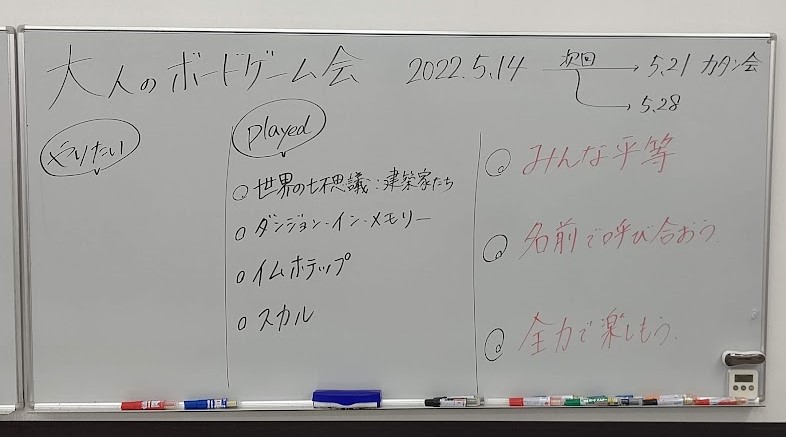 大人のボードゲーム会 2022.5.14 次回 → 5.21 カタン会
→ 5.28
やりたい
played
○ 世界の七不思議:建築家たち
○ ダンジョン・イン・メモリー
○ イムホテップ
○ スカル
○ みんな平等
○ 名前で呼び合おう
○ 全力で楽しもう.